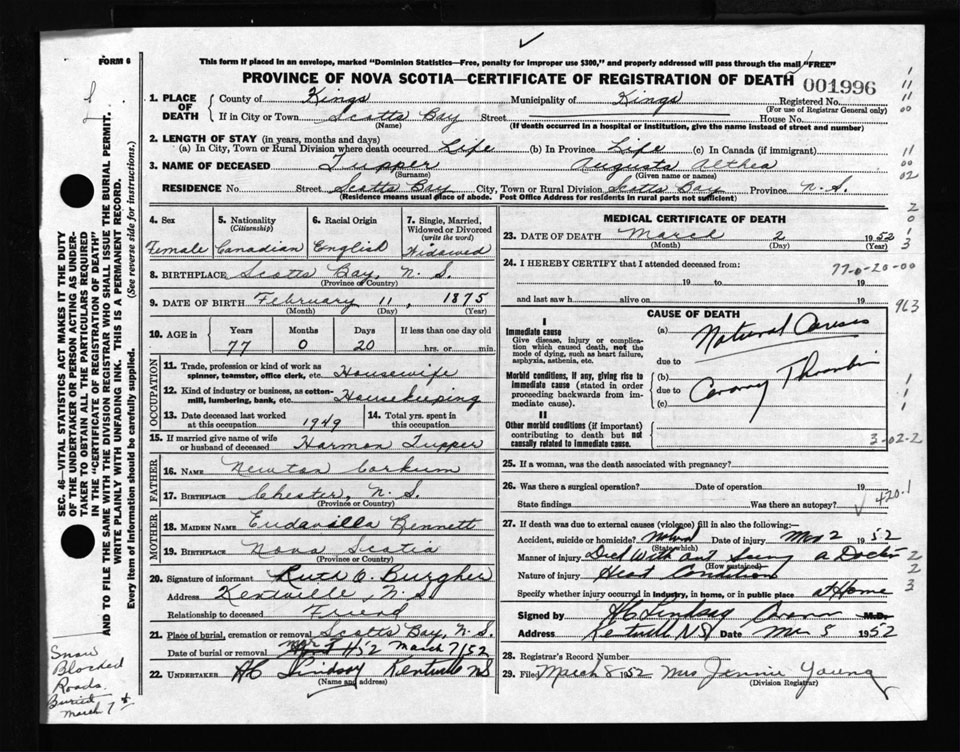 FORM 6
This form if placed in an envelope, marked "Dominion Statistics—Free, penalty for improper use $300," and properly addressed will pass through the mail "FREE"
PROVINCE OF NOVA SCOTIA—CERTIFICATE OF REGISTRATION OF DEATH
001996
1. PLACE OF DEATH County of Kings Municipality of Kings Registered No.
(For use of Registrar General only)
If in City or Town Scotts Bay Street House No.
(Name) (If death occurred in a hospital or institution, give the name instead of street and number)
2. LENGTH OF STAY (in years, months and days)
(a) In City, Town or Rural Division where death occurred Life (b) In Province Life (c) In Canada (if immigrant)
3. NAME OF DECEASED Tupper Augusta Althea
(Surname) (Given name or names)
RESIDENCE No. Street Scotts Bay City, Town or Rural Division Scotts Bay Province N.S.
(Residence means usual place of abode. Post Office Address for residents in rural parts not sufficient)
4. Sex Female
5. Nationality (Citizenship) Canadian
6. Racial Origin English
7. Single, Married, Widowed or Divorced (write the word) Widowed
8. BIRTHPLACE Scotts Bay, N.S.
(Province or Country)
9. DATE OF BIRTH February 11, 1875
(Month) (Day) (Year)
10. AGE in Years Months Days If less than one day old
77 0 20 hrs. or min.
OCCUPATION
11. Trade, profession or kind of work as spinner, teamster, office clerk, etc. Housewife
12. Kind of industry or business, as cotton-mill, lumbering, bank, etc. Housekeeping
13. Date deceased last worked at this occupation 1949
14. Total yrs. spent in this occupation
15. If married give name of wife or husband of deceased Harmon Tupper
FATHER
16. NAME Newton Corkum
17. BIRTHPLACE Chester, N.S.
(Province or Country)
MOTHER
18. MAIDEN NAME Eudavilla Bennett
19. BIRTHPLACE Nova Scotia
(Province or Country)
20. Signature of informant Ruth O. Burgher
Address Kentville, N.S.
Relationship to deceased Friend
21. Place of burial, cremation or removal Scotts Bay, N.S.
Date of burial or removal March 7/52
22. UNDERTAKER HC Lindsay Kentville NS
(Name and address)
MEDICAL CERTIFICATE OF DEATH
23. DATE OF DEATH March 2 1952
(Month) (Day) (Year)
24. I HEREBY CERTIFY that I attended deceased from:
19 to 19
and last saw h alive on 19
77-0-20-00
963
CAUSE OF DEATH
I
Immediate cause
Give disease, injury or complication which caused death, not the mode of dying, such as heart failure, asphyxia, asthenia, etc.
(a) Natural Causes
due to
Morbid conditions, if any, giving rise to immediate cause (stated in order proceeding backwards from immediate cause).
(b)
due to
(c)
II
Other morbid conditions (if important) contributing to death but not causally related to immediate cause.
3-02-2
25. If a woman, was the death associated with pregnancy?
26. Was there a surgical operation? Date of operation 19
State findings Was there an autopsy?
420-1
27. If death was due to external causes (violence) fill in also the following:—
Accident, suicide or homicide? Date of injury Mar 2 1952
(State which)
Manner of injury Died With out Seeing a Doctor
(How sustained)
Nature of injury Heart Condition
Specify whether injury occurred in industry, in home, or in public place at Home
Signed by HC Lindsay M.D.
Address Kentville NS Date Mar 5 1952
28. Registrar's Record Number
29. Filed March 8 1952 Mrs Jennie Young
(Division Registrar)
SEC. 46—VITAL STATISTICS ACT MAKES IT THE DUTY
OF THE UNDERTAKER OR PERSON ACTING AS UNDER-
TAKER TO OBTAIN ALL THE PARTICULARS REQUIRED
IN THE "CERTIFICATE OF REGISTRATION OF DEATH"
AND TO FILE THE SAME WITH THE DIVISION REGISTRAR WHO SHALL ISSUE THE BURIAL PERMIT.
WRITE PLAINLY WITH UNFADING INK. THIS IS A PERMANENT RECORD.
Every item of Information should be carefully supplied. (See reverse side for instructions.)
Snow
Blocked
Roads
Buried
March 7th